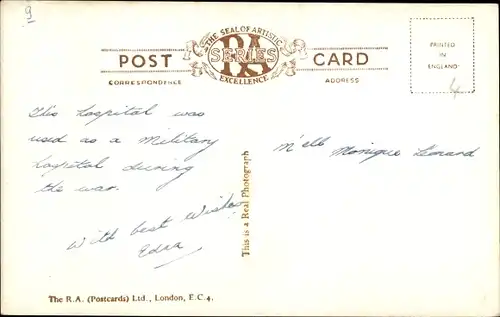 THE SEAL OF ARTISTIC
RA
SERIES
EXCELLENCE
POST CARD
CORRESPONDENCE ADDRESS
PRINTED
IN
ENGLAND
4
9
This hospital was
used as a Military
hospital during
the war.
With best Wishes
Edna
This is a Real Photograph
M'elle Monique Lenard
The R.A. (Postcards) Ltd., London, E.C.4.